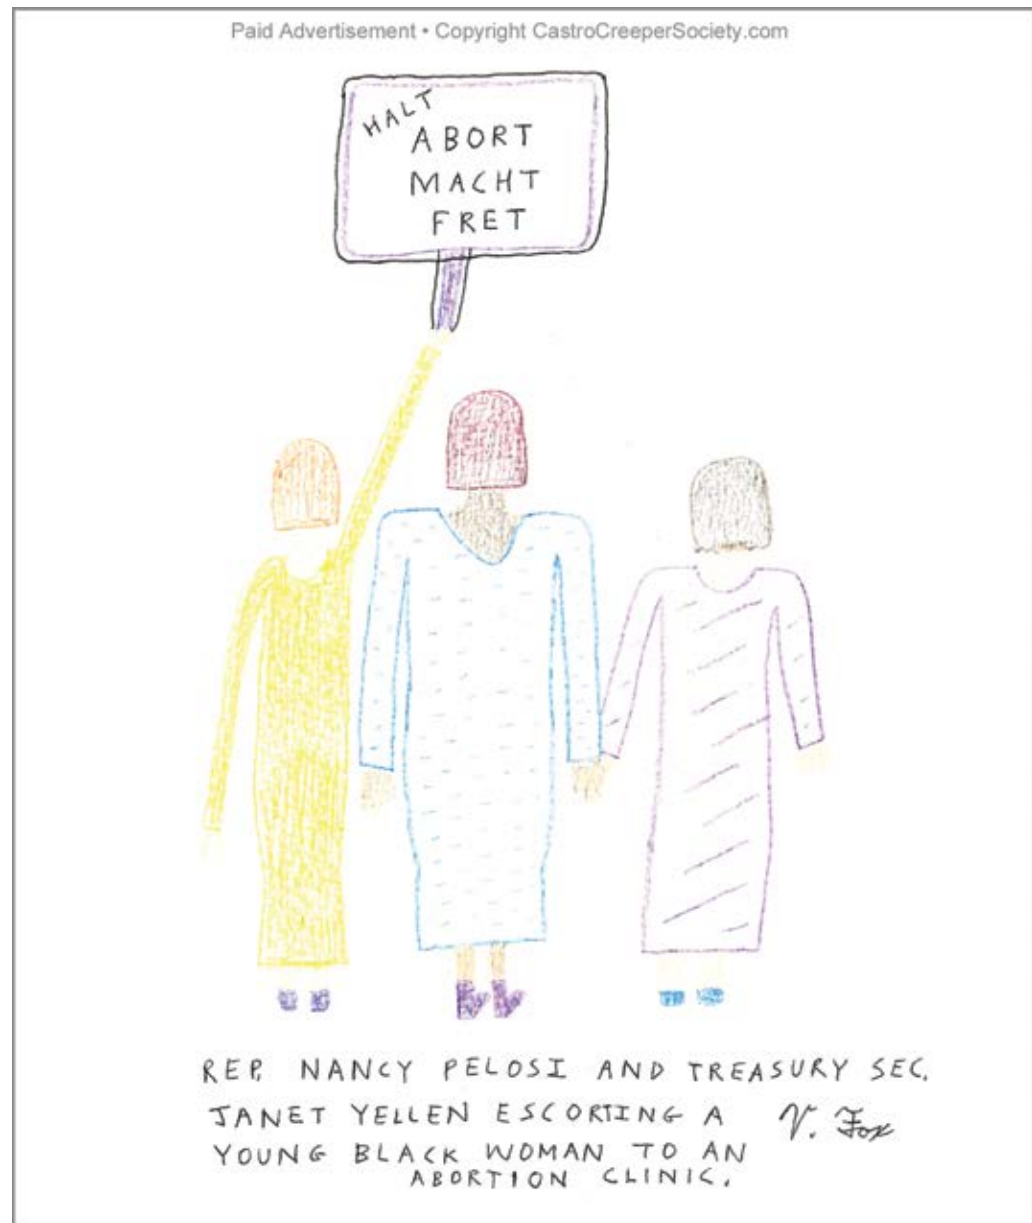 Paid Advertisement • Copyright CastroCreeperSociety.com
HALT
ABORT
MACHT
FRET
REP. NANCY PELOSI AND TREASURY SEC.
JANET YELLEN ESCORTING A
YOUNG BLACK WOMAN TO AN
ABORTION CLINIC.
V. Fox